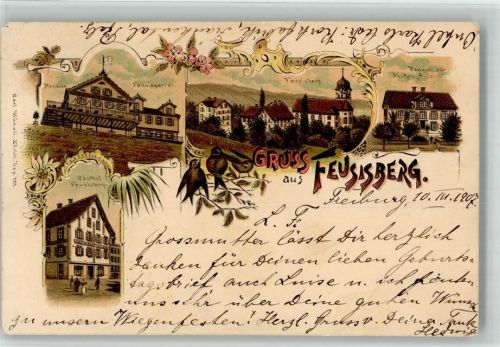 Onkel Karlo lebt: Korkfabrik, Frankental, Pfalz.
Pension
Feusisgarten
Feusisberg
Pension zur
Gasthof
Feusisberg
GRUSS
aus FEUSISBERG.
Freiburg 10. III. 1907
L. F.
Grossmutter lässt Dir herzlich
danken für Deinen lieben Geburts-
tagsbrief auch Luise u. ich
uns sehr über Deine guten
zu unsern Wiegenfesten! Herzl. Gruss v. Deiner Tante
Hedwig